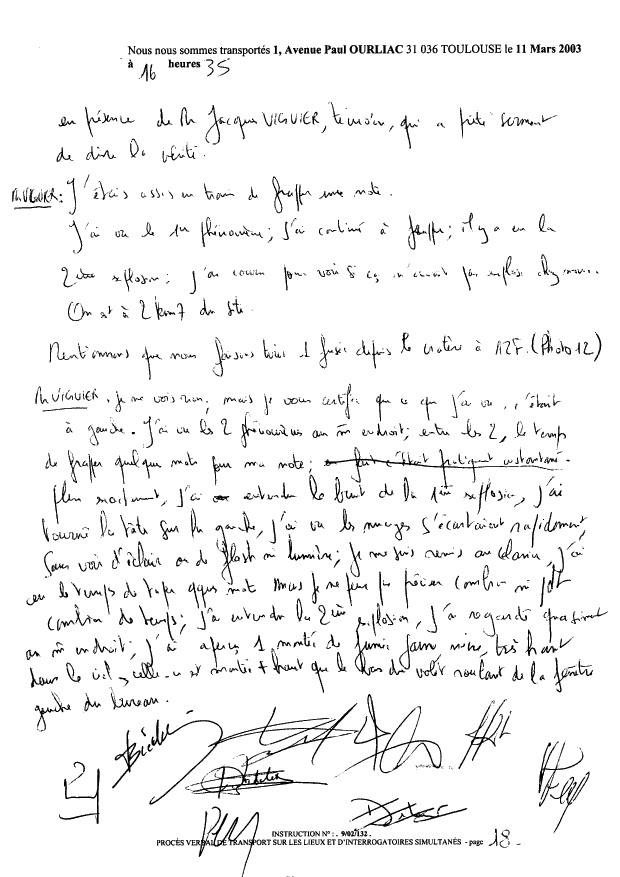 Nous nous sommes transportés 1, Avenue Paul OURLIAC 31 036 TOULOUSE le 11 Mars 2003
à 16 heures 35
en présence de Mr Jacques VIGUIER, témoin, qui a prêté serment
de dire la vérité.
Mr VIGUIER : J'étais assis en train de frapper une note.
J'ai vu le 1er phénomène ; j'ai continué à frapper ; il y a eu la
2ème explosion ; j'ai couru pour voir si ça n'avait pas explosé chez nous.
On est à 2 km 7 du site.
Mentionnons que nous faisons tirer 1 fusée depuis le cratère à AZF. (Photo 12)
Mr VIGUIER. je ne vois rien, mais je vous certifie que ce que j'ai vu, c'était
à gauche. J'ai vu les 2 phénomènes au m̂ endroit ; entre les 2, le temps
de frapper quelques mots pour ma note ; fait c'était pratiquement instantané.
Plus exactement, j'ai entendu le bruit de la 1ère explosion, j'ai
tourné la tête sur ma gauche, j'ai vu les nuages s'écartaient rapidement
sans voir d'éclair ou de flash ni lumière ; je me suis remis au clavier, j'ai
eu le temps de taper qques mots mais je ne peux pas préciser combien ni
combien de temps ; j'ai entendu la 2ème explosion, j'ai regardé
au m̂ endroit ; j'ai aperçu 1 montée de fumée noire, très haut
dans le ciel, celle-ci est montée + haut que le bas du volet roulant de la fenêtre
gauche du bureau.
INSTRUCTION N° : . 9/02/132 .
PROCÈS VERBAL DE TRANSPORT SUR LES LIEUX ET D'INTERROGATOIRES SIMULTANÉS - page 18 -